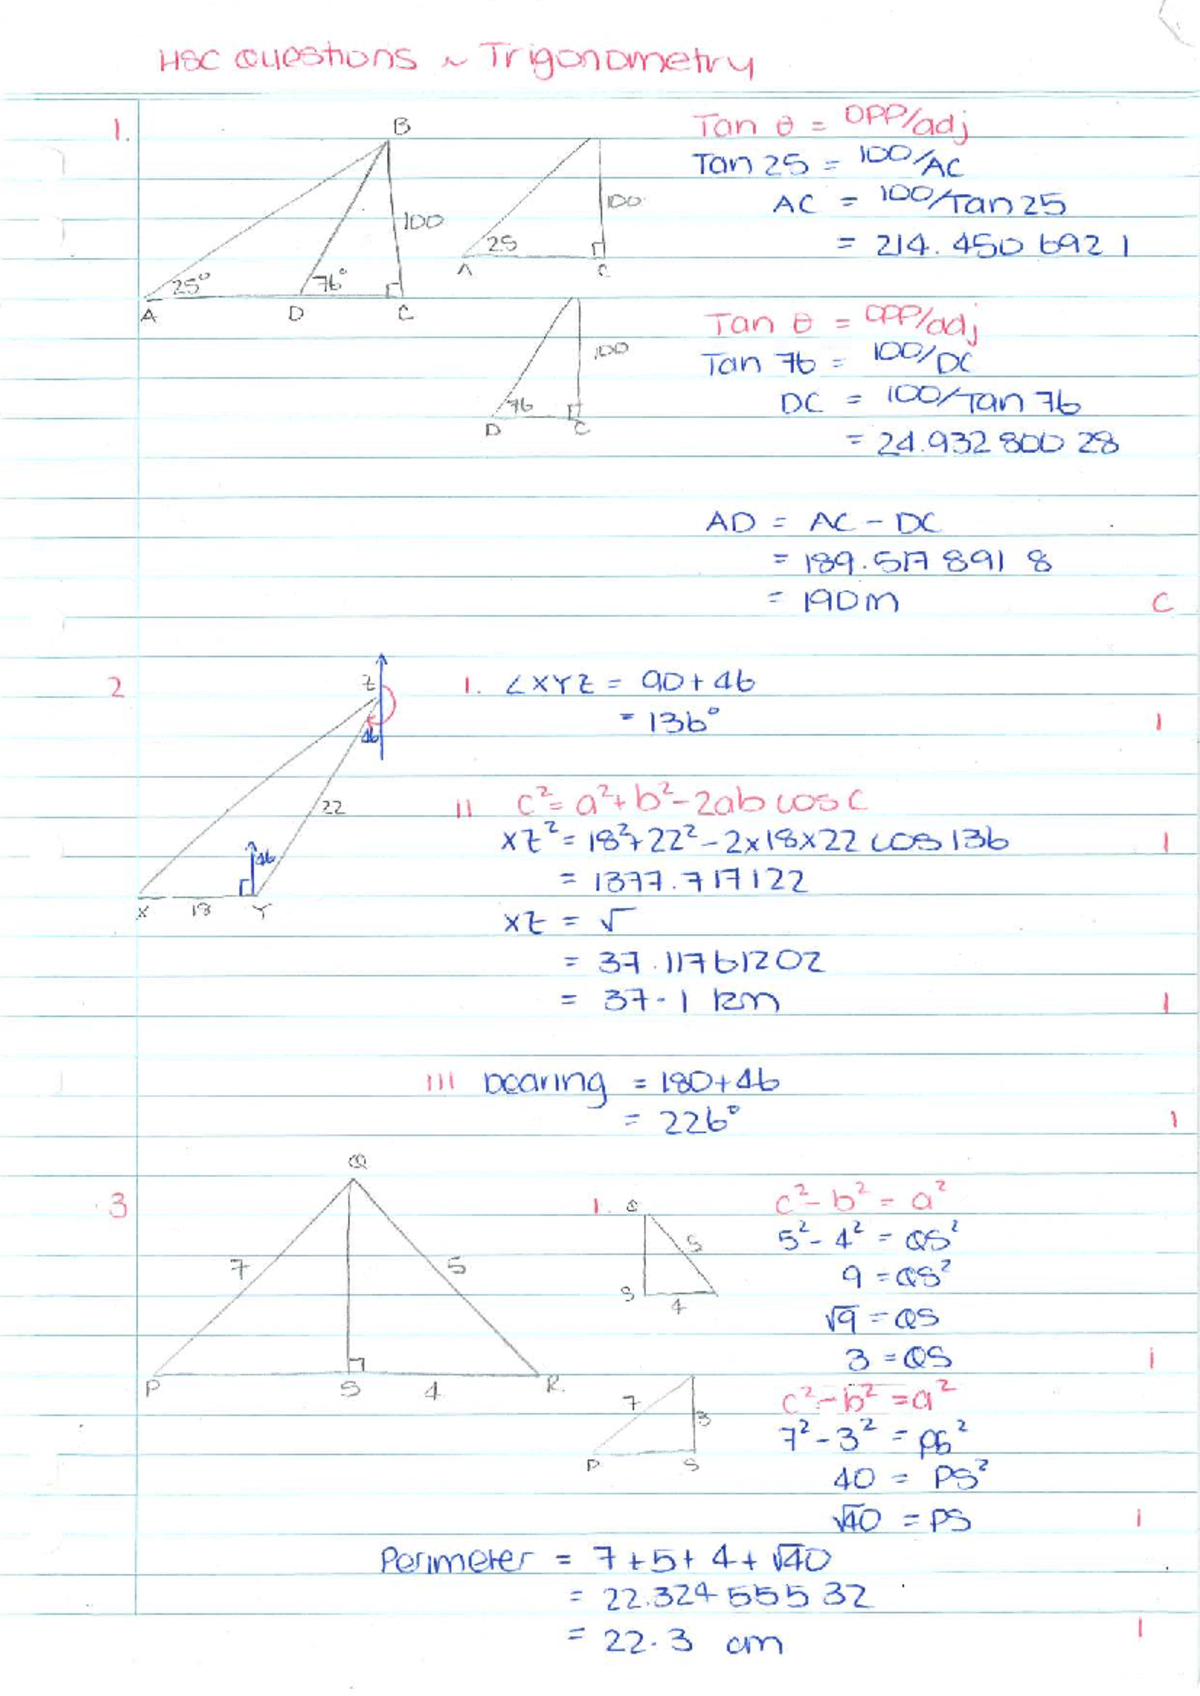 HSC Questions ~ Trigonometry
1.
B
100
25°
76°
A
D
C
100
25
A
C
Tan θ = OPP/adj
Tan 25 = 100/AC
AC = 100/Tan 25
= 214.4506921
100
76
D
C
Tan θ = OPP/adj
Tan 76 = 100/DC
DC = 100/Tan 76
= 24.93280028
AD = AC - DC
= 189.5178918
= 190m
C
2
Z
46
22
46
X
18
Y
I. ∠XYZ = 90+46
= 136°
1
II c² = a²+b²-2ab cos C
XZ² = 18²+22²-2x18x22 cos 136
1
= 1377.717122
XZ = √
= 37.11761202
= 37.1 km
1
III bearing = 180+46
= 226°
1
3
Q
7
5
P
S
4
R
I.
Q
5
S
4
c²-b² = a²
5²-4² = QS²
9 = QS²
√9 = QS
3 = QS
1
7
3
P
S
c²-b² = a²
7²-3² = PS²
40 = PS²
√40 = PS
1
Perimeter = 7+5+4+√40
= 22.32455532
= 22.3 cm
1